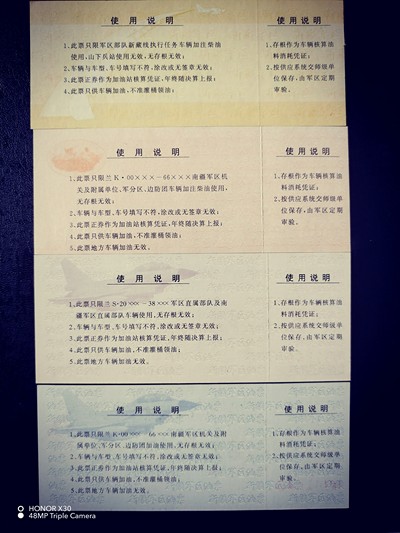 使用说明
1、此票只限军区部队新藏线执行任务车辆加注柴油
使用，山下兵站使用无效，无存根无效；
2、车辆与车型、车号填写不符，涂改或无签章无效；
3、此票正券作为加油站核算凭证，年终随决算上报；
4、此票只供车辆加油，不准灌桶领油；
使用说明
1、存根作为车辆核算油
料消耗凭证；
2、按供应系统交师级单
位保存，由军区定期
审验。
使用说明
1、此票只限兰K·00×××－66×××南疆军区机
关及附属单位、军分区、边防团车辆加注柴油使用，
无存根无效；
2、车辆与车型、车号填写不符，涂改或无签章无效；
3、此票正券作为加油站核算凭证，年终随决算上报；
4、此票只供车辆加油，不准灌桶领油；
5、此票地方车辆加油无效。
使用说明
1、存根作为车辆核算油
料消耗凭证；
2、按供应系统交师级单
位保存，由军区定期
审验。
使用说明
1、此票只限兰S·20×××－38×××军区直属部队及南
疆军区直属部队车辆使用，无存根无效；
2、车辆与车型、车号填写不符，涂改或无签章无效；
3、此票正券作为加油站核算凭证，年终随决算上报；
4、此票只供车辆加油，不准灌桶领油；
5、此票地方车辆加油无效。
使用说明
1、存根作为车辆核算油
料消耗凭证；
2、按供应系统交师级单
位保存，由军区定期
审验。
使用说明
1、此票只限兰K·00××× 66×××南疆军区机关及附
属单位、军分区、边防团加油使用，无存根无效；
2、车辆与车型、车号填写不符，涂改或无签章无效；
3、此票正券作为加油站核算凭证，年终随决算上报；
4、此票只供车辆加油，不准灌桶领油；
5、此票地方车辆加油无效。
使用说明
1、存根作为车辆核算油
料消耗凭证；
2、按供应系统交师级单
位保存，由军区定期
审验。
HONOR X30
48MP Triple Camera